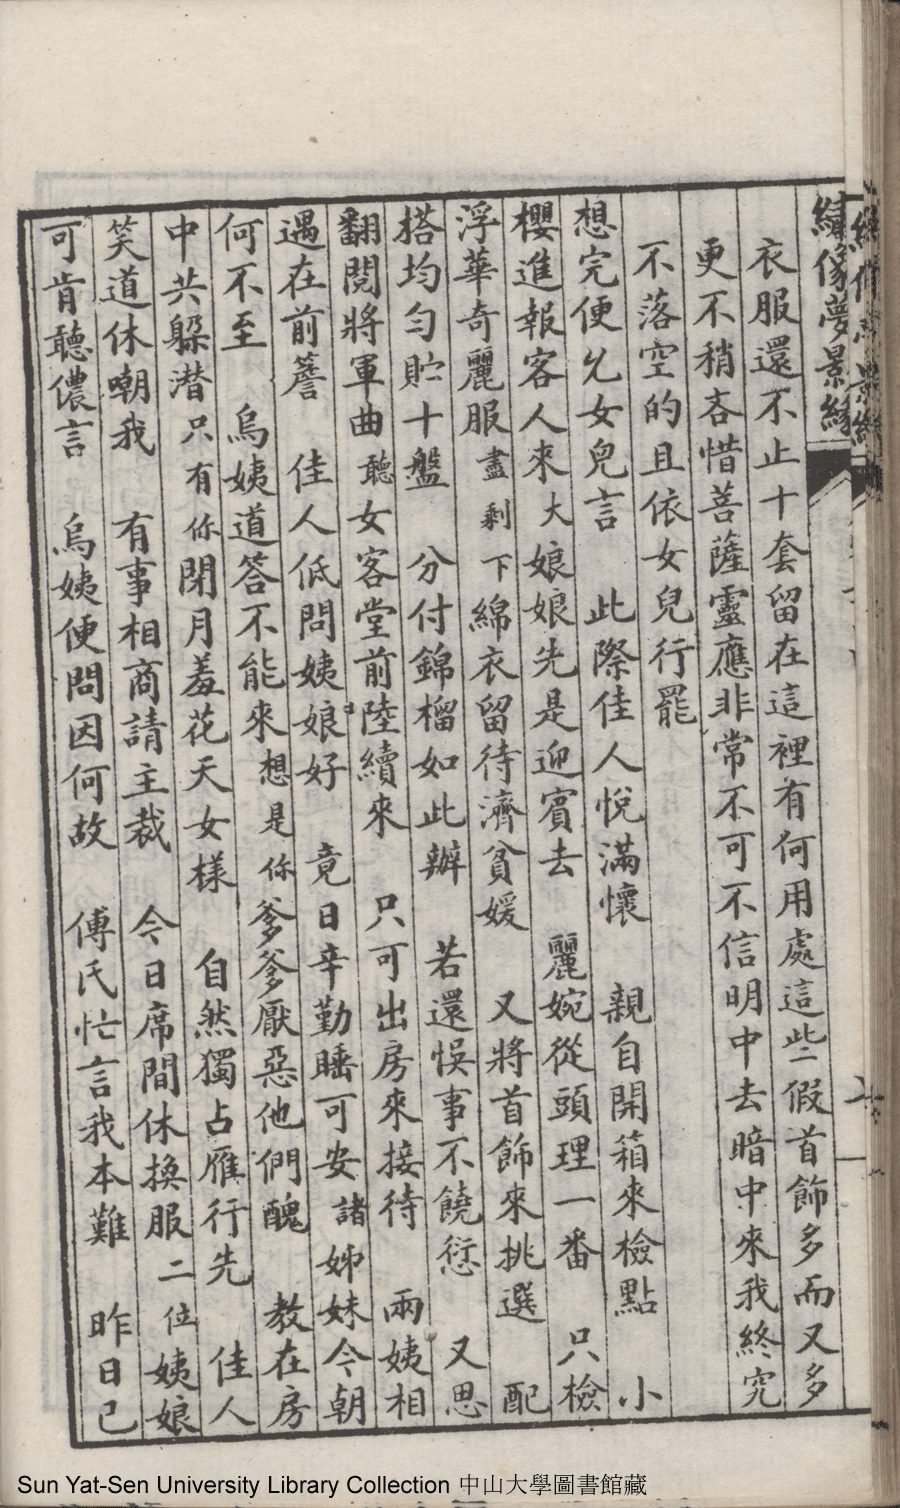 繡像夢景緣
衣服還不止十套留在這裡有何用處這些假首飾多而又多
更不稍吝惜菩薩靈應非常不可不信明中去暗中來我終究
不落空的且依女兒行罷
想完便允女兒言　此際佳人悅滿懷　親自開箱來檢點　小
櫻進報客人來大娘娘先是迎賓去　麗婉從頭理一番　只檢
浮華奇麗服盡剩下綿衣留待濟貧媛　又將首飾來挑選　配
搭均勻貯十盤　分付錦榴如此辦　若還悞事不饒愆　又思
翻閱將軍曲聽女客堂前陸續來　只可出房來接待　兩姨相
遇在前簷　佳人低問姨娘好　竟日辛勤睡可安諸姊妹今朝
何不至　烏姨道答不能來想是你爹爹厭惡他們醜　教在房
中共躲潛只有你閉月羞花天女樣　自然獨占雁行先　佳人
笑道休嘲我　有事相商請主裁　今日席間休換服二位姨娘
可肯聽儂言　烏姨便問因何故　傅氏忙言我本難　昨日已
Sun Yat-Sen University Library Collection 中山大學圖書館藏